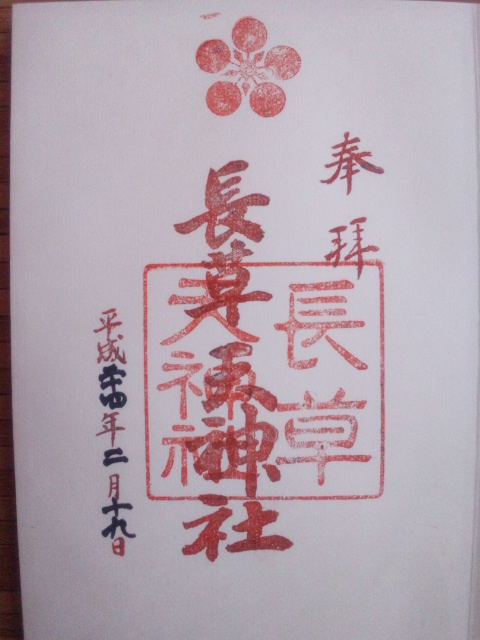 奉拝
長草天神社
長草
天神社
平成二十四年二月十九日